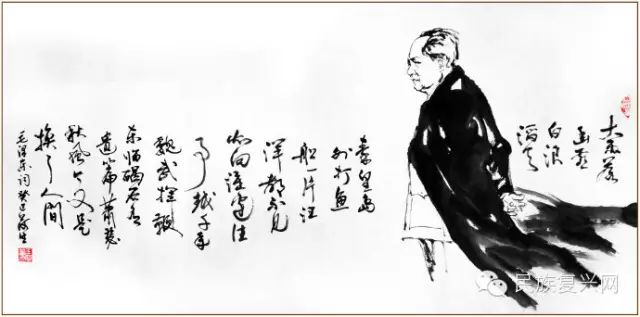 大雨落
幽燕
白浪
滔天
秦皇岛
外打鱼
船一片汪
洋都不见
知向谁边往
事越千年
魏武挥鞭
东临碣石有
遗篇萧瑟
秋风今又是
换了人間
毛泽东词癸巳
民族复兴网